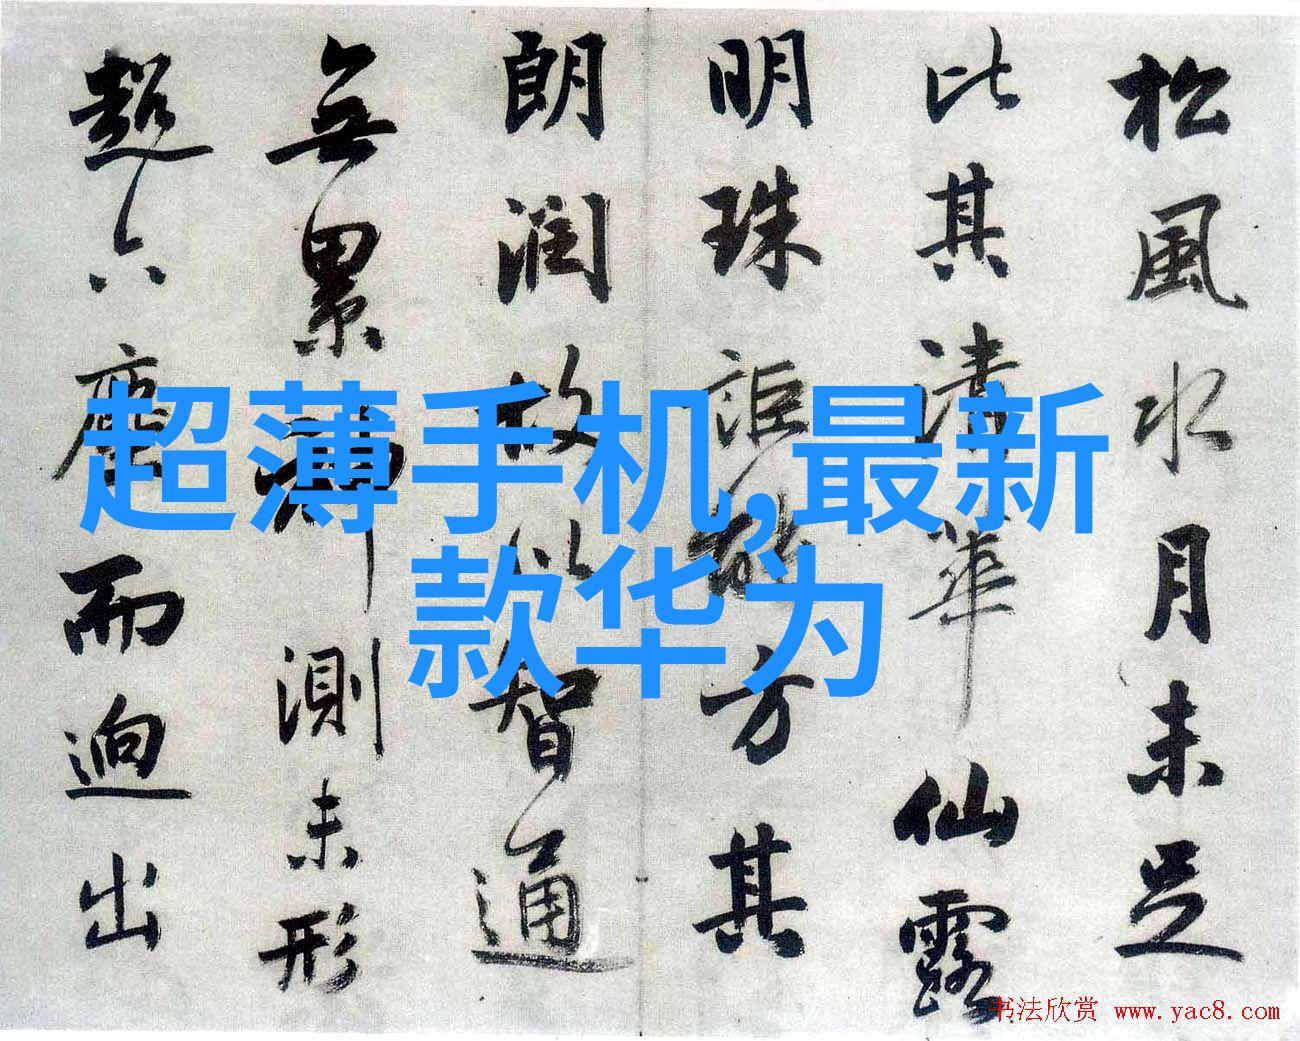 松風水月未足
比其清華仙露
明珠詎能方其
朗潤故以智通
無累神測未形
超六塵而迥出
超薄手机,最新
款华为
书法欣赏 www.yac8.com